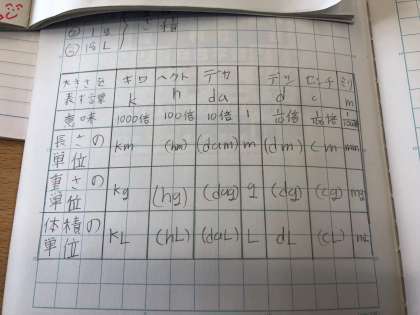 ② 1g
③ 1L
大きさを表す言葉 キロ k ヘクト h デカ da デシ d センチ c ミリ m
意味 1000倍 100倍 10倍 1 1/10倍 1/100倍 1/1000倍
長さの単位 km (hm) (dam) m (dm) cm mm
重さの単位 kg (hg) (dag) g (dg) (cg) mg
体積の単位 kL (hL) (daL) L dL (cL) mL